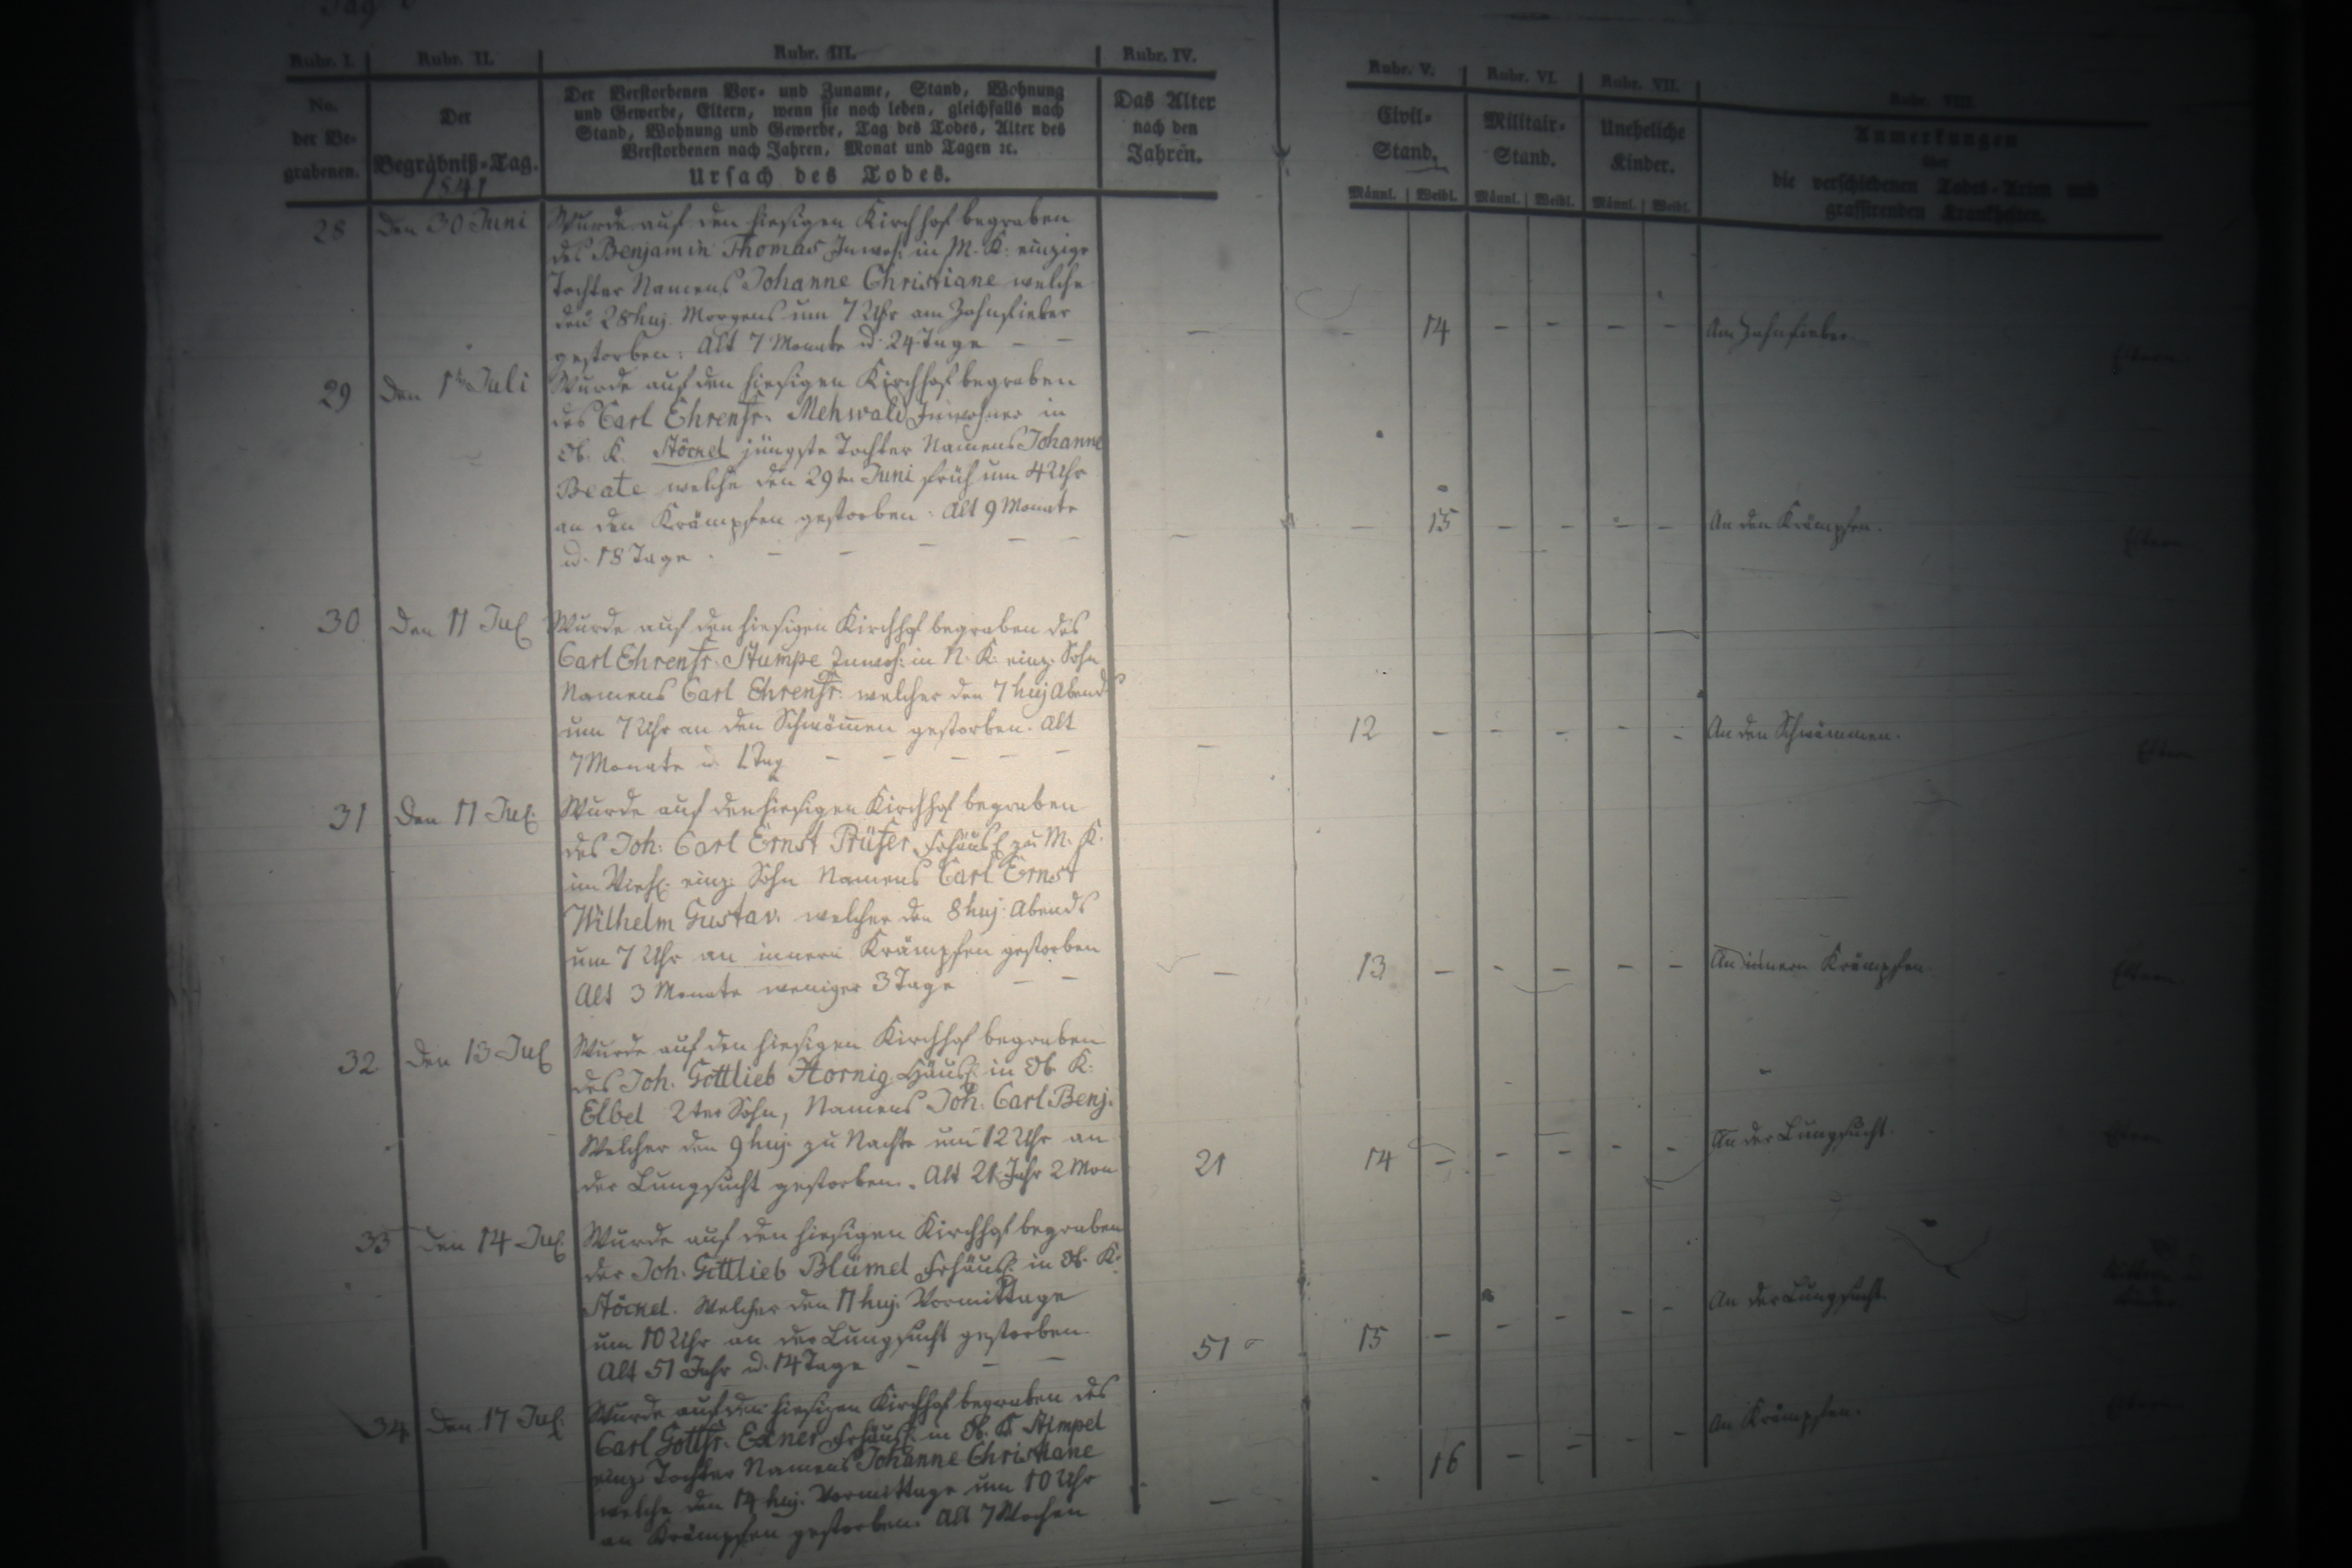 Rubr. I.
Rubr. II.
Rubr. III.
Rubr. IV.
Rubr. V.
Rubr. VI.
Rubr. VII.
Rubr. VIII.
No.
der Be-
grabenen.
Der
Begräbniß-Tag.
1841
Der Verstorbenen Vor- und Zuname, Stand, Wohnung
und Gewerbe, Eltern, wenn sie noch leben, gleichfalls nach
Stand, Wohnung und Gewerbe, Tag des Todes, Alter des
Verstorbenen nach Jahren, Monat und Tagen ꝛc.
Ursach des Todes.
Das Alter
nach den
Jahren.
Civil-
Stand.
Männl. Weibl.
Militair-
Stand.
Männl. Weibl.
Uneheliche
Kinder.
Männl. Weibl.
Anmerkungen
über
die verschiedenen Todes-Arten und
grassirenden Krankheiten.
28 den 30 Juni
Wurde auf den hiesigen Kirchhof begraben
des Benjamin Thomas Inwoh: in M. K. einzige
Tochter Namens Johanne Christiane welche
den 28 huj. Morgens um 7 Uhr am Zahnfieber
gestorben: Alt 7 Monate u. 24 Tage – –
– – 14 – – – – Am Zahnfieber.
29 den 1t Juli
Wurde auf den hiesigen Kirchhof begraben
des Carl Ehrenfr. Mehwald Inwohner in
Ob. K. Stöckel jüngste Tochter Namens Johanne
Beate welche den 29ten Juni früh um 4 Uhr
an den Krämpfen gestorben. Alt 9 Monate
u. 18 Tage. – – – – –
– – 15 – – – – An den Krämpfen. Eltern
30 den 11 Jul
Wurde auf den hiesigen Kirchhof begraben des
Carl Ehrenfr. Stumpe Inwoh: in N. K. einz. Sohn
Namens Carl Ehrenfr. welcher den 7 huj Abends
um 7 Uhr an den Schwämen gestorben. Alt
7 Monate u. 1 Tag – – – –
– 12 – – – – – An den Schwämmen. Eltern
31 Den 11 Jul.
Wurde auf den hiesigen Kirchhof begraben
des Joh. Carl Ernst Prüfer, Frhäusl zu M. K.
im Vieh. einz. Sohn Namens Carl Ernst
Wilhelm Gustav. welcher den 8 huj. Abends
um 7 Uhr an innern Krämpfen gestorben
Alt 3 Monate weniger 3 Tage – –
– 13 – – – – – An innern Krämpfen. Eltern
32. den 13 Jul
Wurde auf den hiesigen Kirchhof begraben
des Joh. Gottlieb Hornig Häusl. in Ob. K.
Elbel 2ter Sohn, Namens Joh. Carl Benj.
Welcher den 9 huj. zu Nachts um 12 Uhr an
der Lungsucht gestorben. Alt 21 Jahr 2 Mon
21 14 – – – – – An der Lungsucht. Eltern
33 den 14 Jul.
Wurde auf den hiesigen Kirchhof begraben
der Joh. Gottlieb Blümel Frhäusl. in Ob. K.
Stöckel. Welcher den 11 huj. Vormittage
um 10 Uhr an der Lungsucht gestorben.
Alt 51 Jahr u. 14 Tage – – –
51 15 – – – – – An der Lungsucht.
34 den 17 Jul.
Wurde auf den hiesigen Kirchhof begraben des
Carl Gottfr. Exner Frhäusl. in Ob. K. Stimpel
einz. Tochter Namens Johanne Christiane
welche den 14 huj. Vormittage um 10 Uhr
an Krämpfen gestorben. Alt 7 Wochen
– 16 – – – – An Krämpfen.